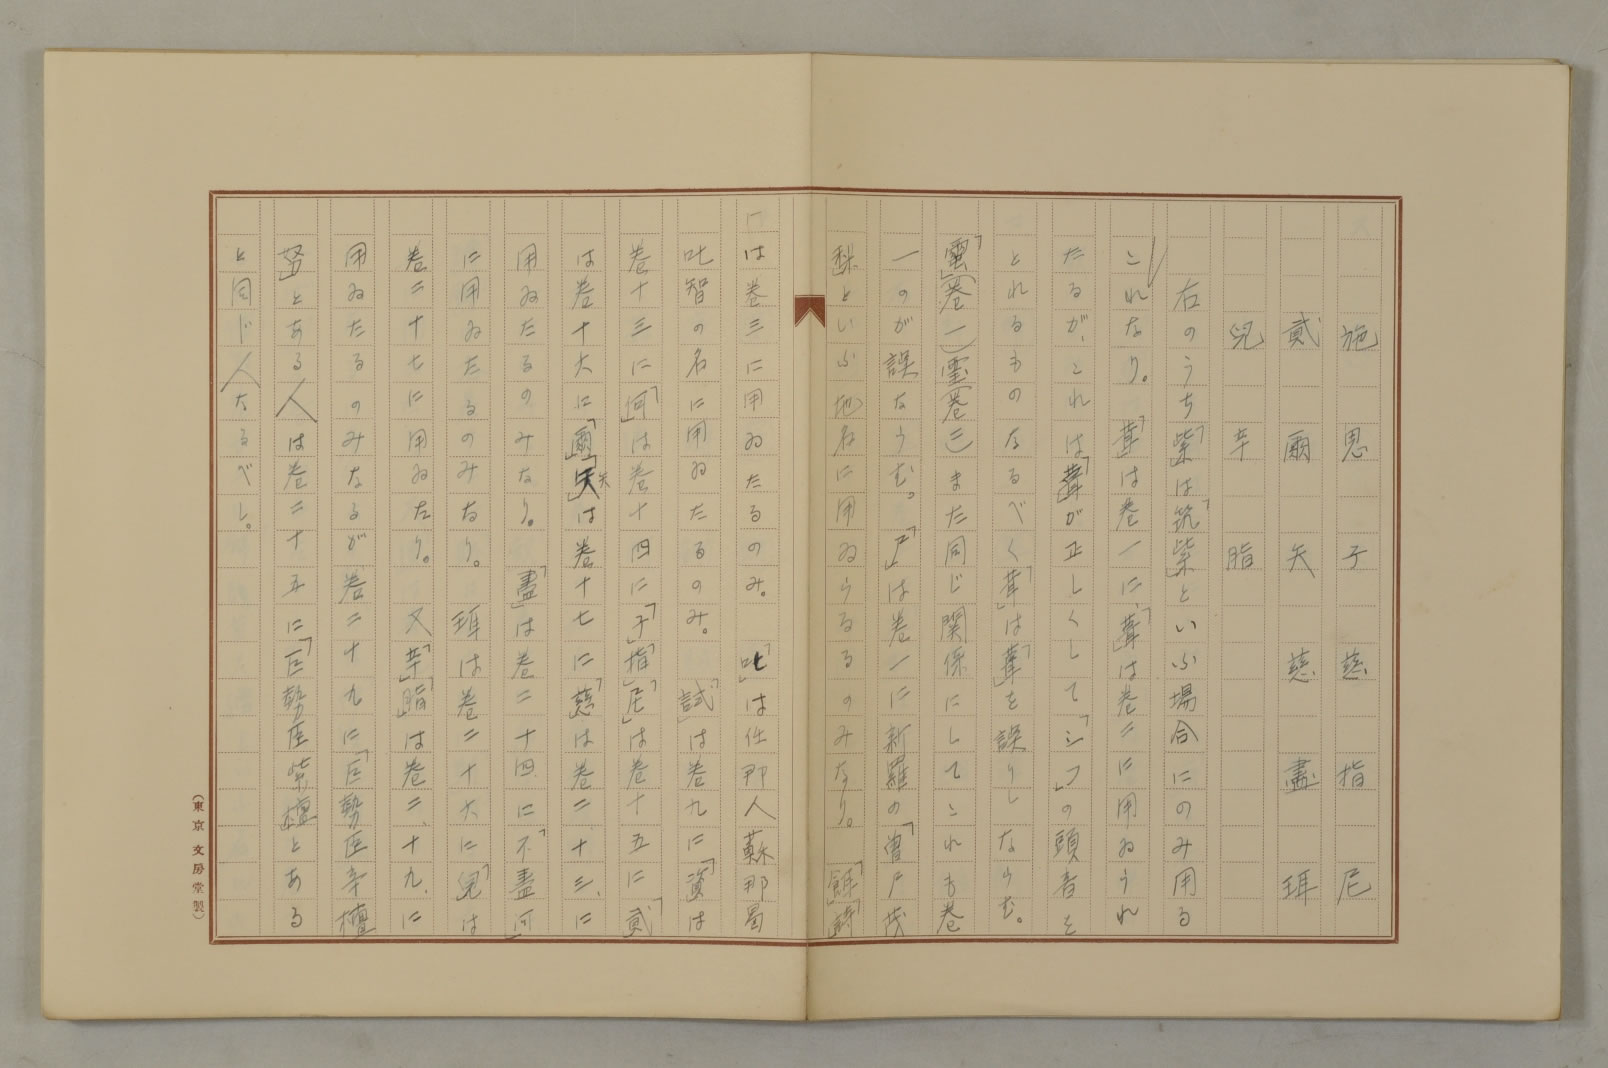 施 思 子 慈 指 尼
貳 爾 矢 慈 盡 珥
兒 辛 脂
右のうち「紫」は「筑紫」といふ場合にのみ用る
これなり。「茸」は巻一に、「葺」は巻二に用ゐられ
たるが、これは「葺」が正しくして「シフ」の頭音を
とれるものなるべく「茸」は「葺」を誤りしならむ。
巻一)(巻二)また同じ関係にしてこれも巻
一のが誤ならむ。「尸」は巻一に新羅の「曽尸茂
梨といふ地名に用ゐらるるのみなり。「餌」「詩」
は巻三に用ゐたるのみ。「叱」は任那人蘇那曷
叱智の名に用ゐたるのみ。「試」は巻九に「資」は
巻十三に「伺」は巻十四に「子」「指」「尼」は巻十五に「貳」
は巻十六に「爾」「矢」は巻十七に「慈」は巻二、十三、に
用ゐたるのみなり。「盡」は巻二十四に「不盡河」
に用ゐたるのみなり。珥は巻二十六に「兒」は
巻二十七に用ゐたり。又「辛」「脂」は巻二、十九、に
用ゐたるのみなるが巻二十九に「巨勢臣辛檀
努」とある人は巻二十五に「巨勢臣紫檀」とある
と同じ人なるべし。
(東京 文房堂製)